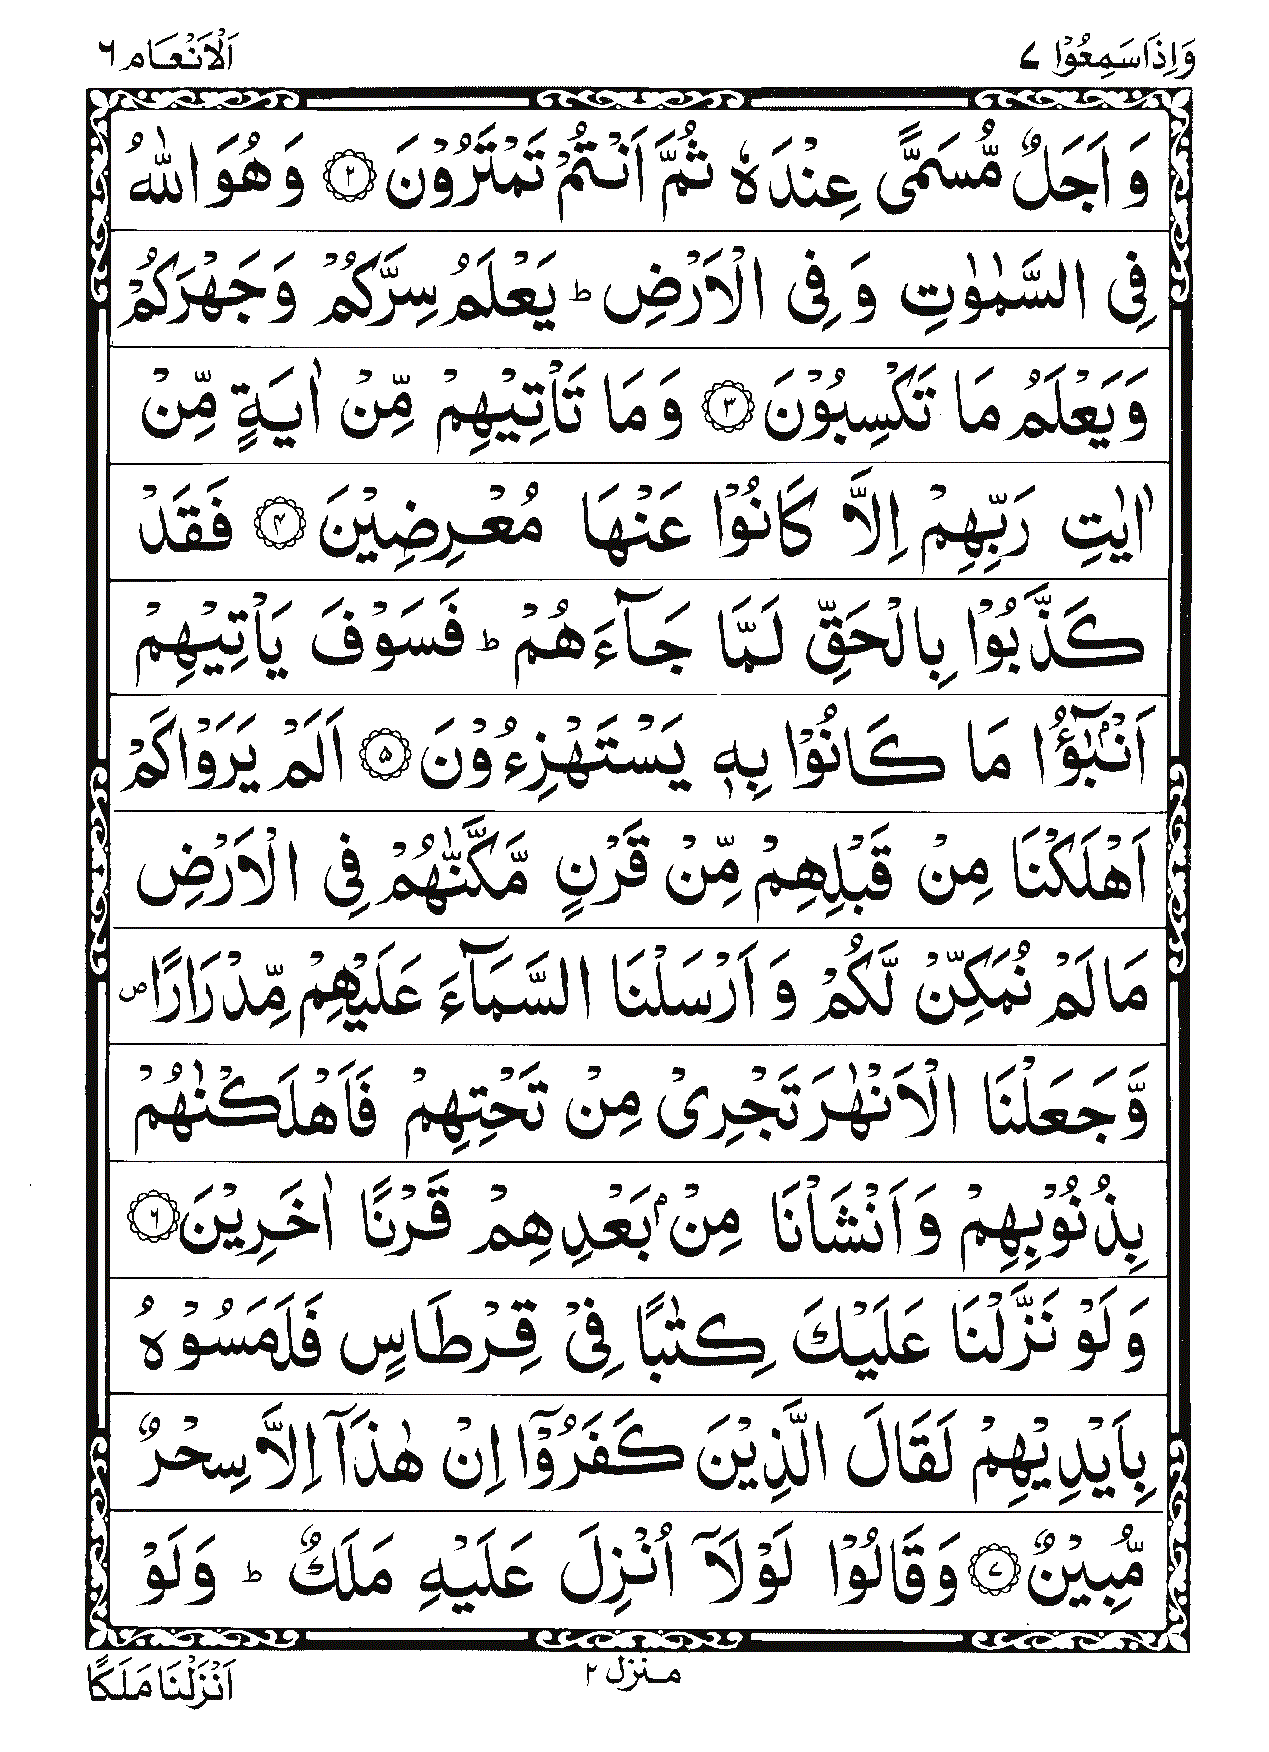 وَاِذَاسَمِعُوْا ٧
اَلْاَنْعَـام ٦
وَ اَجَلٌ مُّسَمًّى عِنْدَهٗ ثُمَّ اَنْتُمْ تَمْتَرُوْنَ ۝٢ وَهُوَ اللّٰهُ
فِى السَّمٰوٰتِ وَ فِى الْاَرْضِ ؕ يَعْلَمُ سِرَّكُمْ وَجَهْرَكُمْ
وَيَعْلَمُ مَا تَكْسِبُوْنَ ۝٣ وَمَا تَاْتِيْهِمْ مِّنْ اٰيَةٍ مِّنْ
اٰيٰتِ رَبِّهِمْ اِلَّا كَانُوْا عَنْهَا مُعْرِضِيْنَ ۝٤ فَقَدْ
كَذَّبُوْا بِالْحَقِّ لَمَّا جَآءَهُمْ ؕ فَسَوْفَ يَاْتِيْهِمْ
اَنْۢبٰٓؤُا مَا كَانُوْا بِهٖ يَسْتَهْزِءُوْنَ ۝٥ اَلَمْ يَرَوْاكَمْ
اَهْلَكْنَا مِنْ قَبْلِهِمْ مِّنْ قَرْنٍ مَّكَّنّٰهُمْ فِى الْاَرْضِ
مَالَمْ نُمَكِّنْ لَّكُمْ وَ اَرْسَلْنَا السَّمَآءَ عَلَيْهِمْ مِّدْرَارًا ۪
وَّجَعَلْنَا الْاَنْهٰرَ تَجْرِىْ مِنْ تَحْتِهِمْ فَاَهْلَكْنٰهُمْ
بِذُنُوْبِهِمْ وَاَنْشَاْنَا مِنْۢ بَعْدِهِمْ قَرْنًا اٰخَرِيْنَ ۝٦
وَلَوْ نَزَّلْنَا عَلَيْكَ كِتٰبًا فِىْ قِرْطَاسٍ فَلَمَسُوْهُ
بِاَيْدِيْهِمْ لَقَالَ الَّذِيْنَ كَفَرُوْٓا اِنْ هٰذَآ اِلَّا سِحْرٌ
مُّبِيْنٌ ۝٧ وَقَالُوْا لَوْلَآ اُنْزِلَ عَلَيْهِ مَلَكٌ ؕ وَلَوْ
منزل ٢
اَنْزَلْنَا مَلَكًا